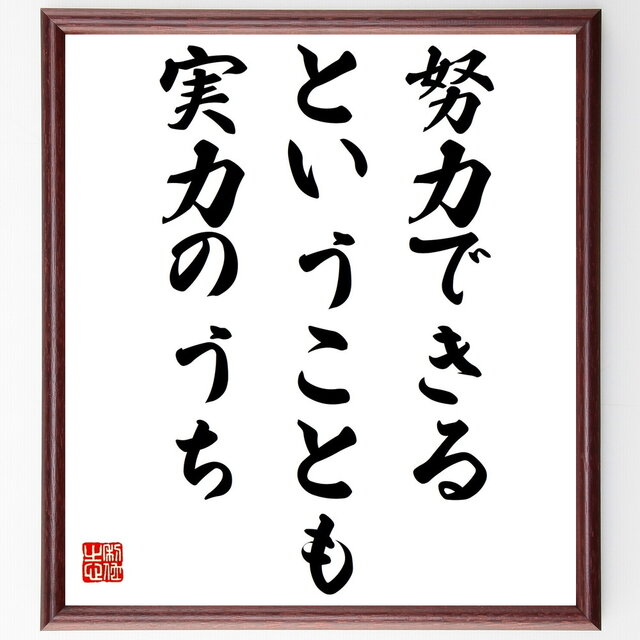 努力できる
ということも
実力のうち